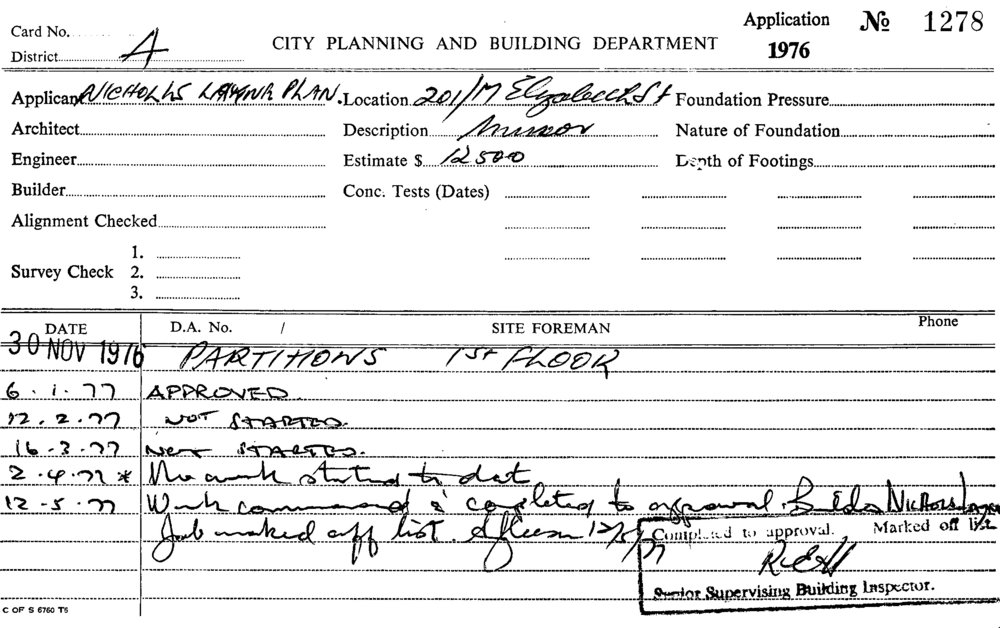 Card No.
District A
CITY PLANNING AND BUILDING DEPARTMENT
Application No 1278
1976
Applicant NICHOLLS LAYING PLAN. Location 201/17 Elizabeth St Foundation Pressure
Architect Description Minor Nature of Foundation
Engineer Estimate $ 12500 Depth of Footings
Builder Conc. Tests (Dates)
Alignment Checked
Survey Check 1.
2.
3.
DATE D.A. No. / SITE FOREMAN Phone
30 NOV 1976 PARTITIONS 1ST FLOOR
6.1.77 APPROVED
12.2.77 NOT STARTED.
16-3-77 NOT STARTED.
2.4.77 * No work started to date
12-5-77 Work commenced & completed to approval Builder NICHOLLS
Job marked off list. 12/5/77
Completed to approval. Marked off list
Senior Supervising Building Inspector.
C OF S 6760 T6